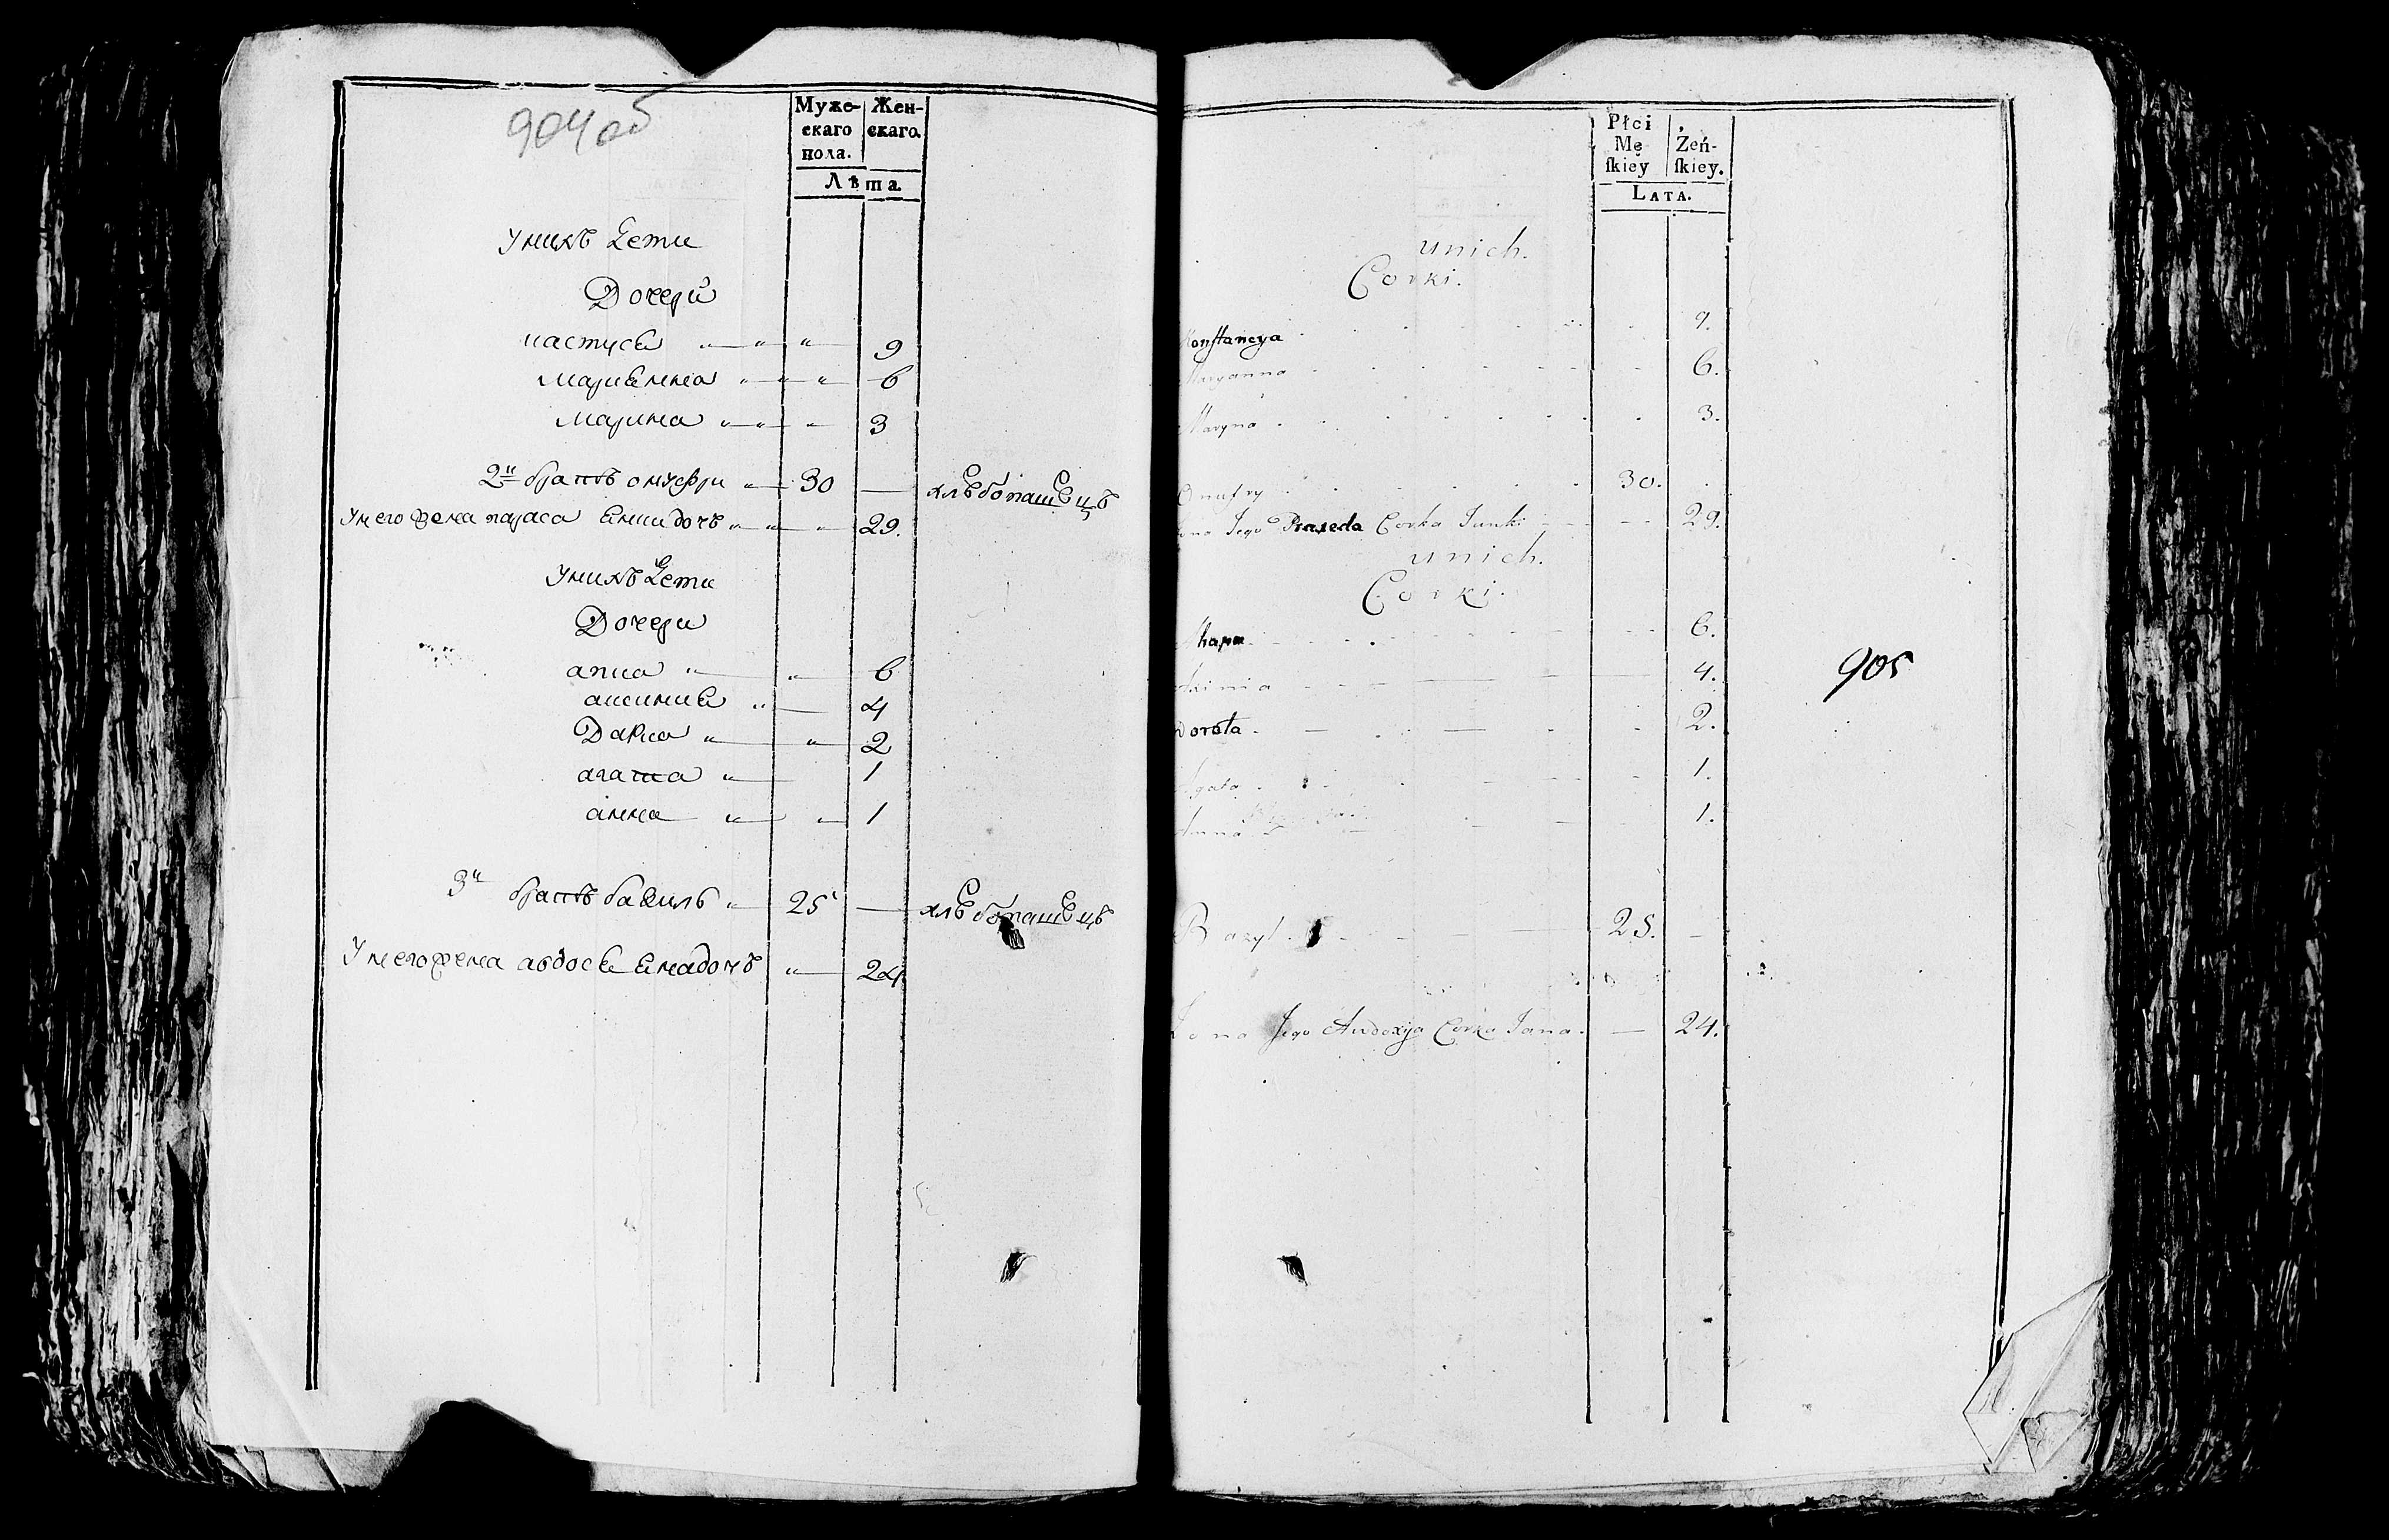 904 об
Муже- Жен-
скаго скаго.
пола.
Лѣта.
У нихъ дети
Дочери
настуся 9
мариянна 6
марина 3
2й братъ онуфри 30 — хлѣбопашецъ
У него жена параса янки дочь 29.
У нихъ дети
Дочери
апиа 6
аксиния 4
Дариа 2
агата 1
анна 1
3й братъ василь 25 — хлѣбопашецъ
У него жена авдося яна дочь 24
Płci
Mę Żeń-
ſkiey ſkiey.
LATA.
unich.
Corki.
Konſtancya 9.
Maryanna 6.
Maryna 3.
Onufry 30.
Żona Jego Praxeda Corka Janki 29.
unich.
Corki.
6.
4.
Dorota 2.
Agata 1.
Anna 1.
905
Bazyl 25.
Zona Jego Audoxyja Corka Jana. 24.